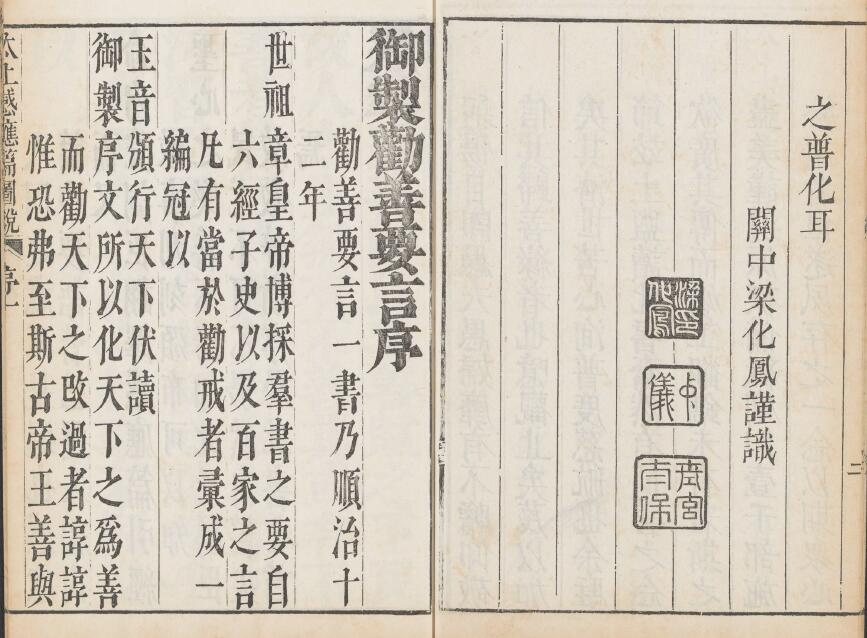 之普化耳
關中梁化鳳謹識
二
御製勸善要言序
勸善要言一書乃順治十
二年
世祖章皇帝博採羣書之要自
六經子史以及百家之言
凡有當於勸戒者彙成一
編冠以
玉音頒行天下伏讀
御製序文所以化天下之爲善
而勸天下之改過者諄諄
惟恐弗至斯古帝王善與
太上感應篇圖說 序 一